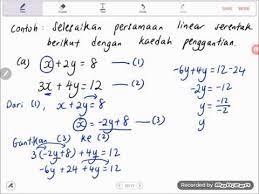 Contoh: Selesaikan persamaan linear serentak
berikut dengan kaedah penggantian.
(a) x + 2y = 8 — (1)
3x + 4y = 12 — (2)
Dari (1), x + 2y = 8
x = -2y + 8 — (3)
Gantikan (3) ke (2)
3(-2y+8) + 4y = 12
-6y + 24 + 4y = 12
-6y + 4y = 12 - 24
-2y = -12
y = -12/-2
y